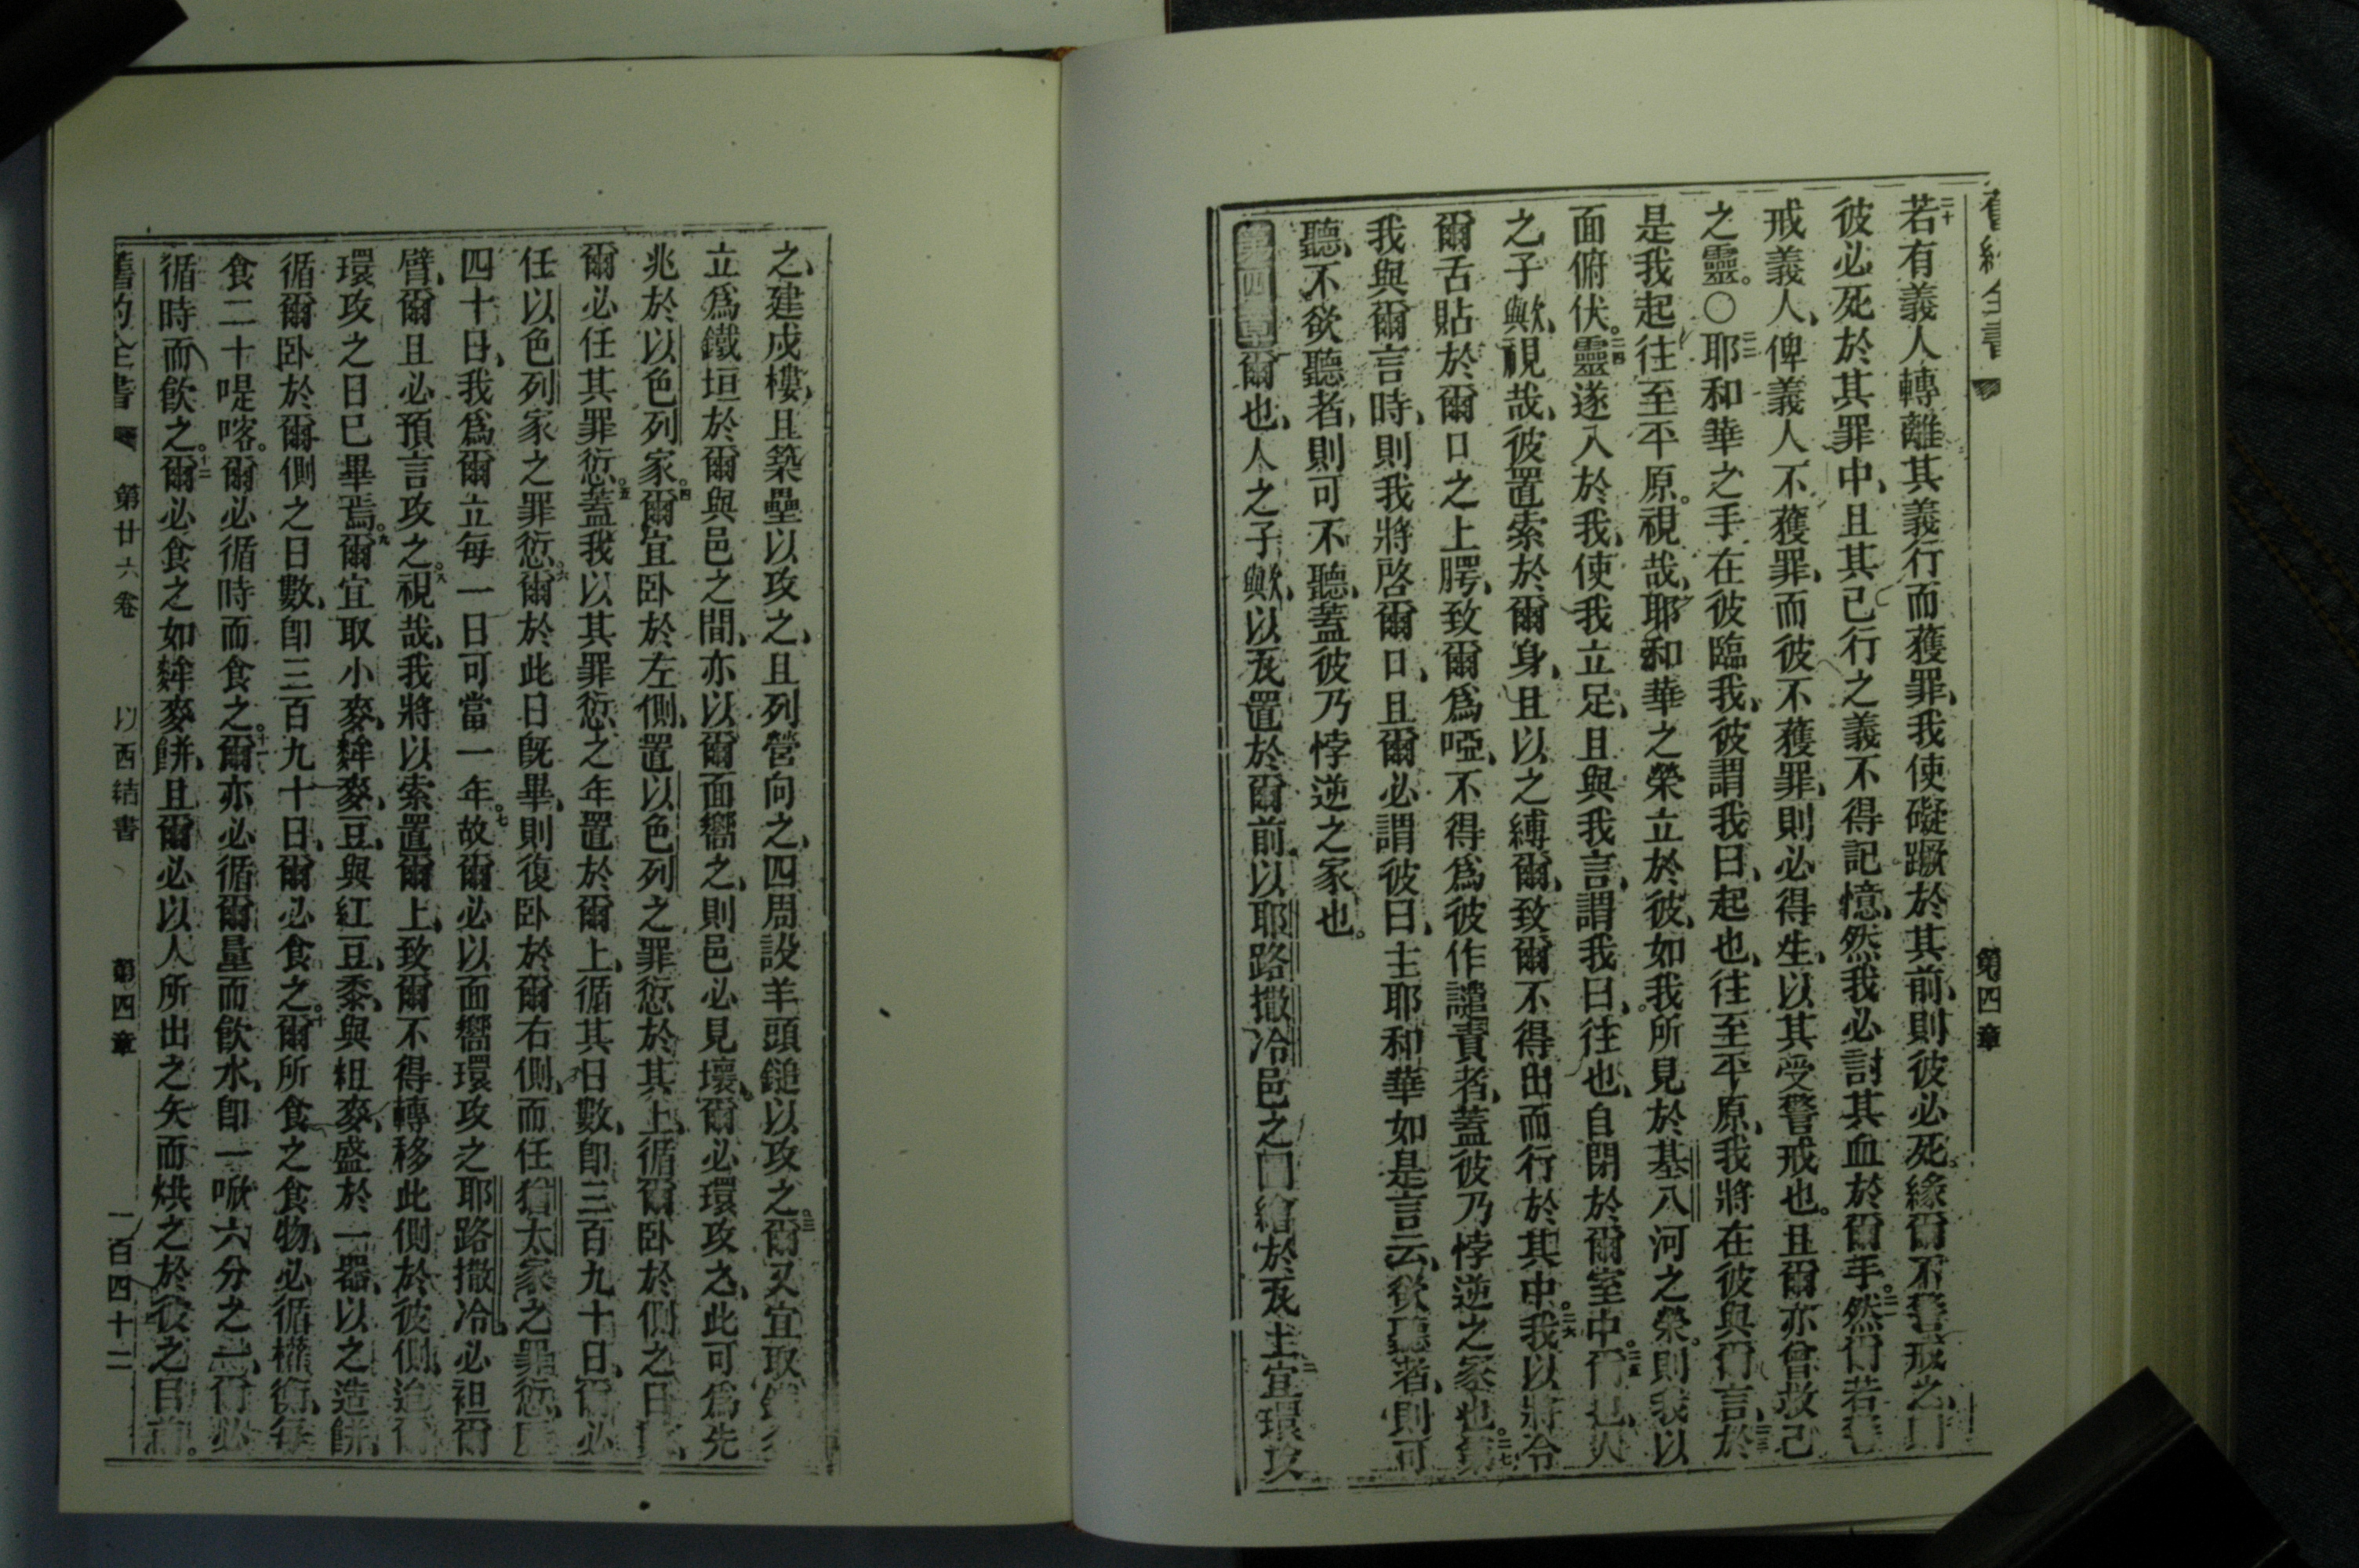 第四章
二十
若有義人轉離其義行而獲罪、我使礙蹶於其前、則彼必死、緣爾不警戒之、
彼必死於其罪中、且其已行之義不得記憶、然我必討其血於爾手。二一然爾若警
戒義人、俾義人不獲罪、而彼不獲罪、則必得生、以其受警戒也。且爾亦曾救己
之靈。○二二耶和華之手在彼臨我、彼謂我曰、起也、往至平原、我將在彼與爾言、二三於
是我起往至平原。視哉、耶和華之榮立於彼、如我所見於基八河之榮。則我以
面俯伏。二四靈遂入於我、使我立足、且與我言、謂我曰、往也、自閉於爾室中。二五爾也、人
之子歟、視哉、彼置索於爾身、且以之縛爾、致爾不得出而行於其中。二六我以將令
爾舌貼於爾口之上腭、致爾爲啞、不得爲彼作譴責者、蓋彼乃悖逆之家也。二七
我與爾言時、則我將啓爾口、且爾必謂彼曰、主耶和華如是言云、欲聽者、則可
聽、不欲聽者、則可不聽、蓋彼乃悖逆之家也。
第四章爾也、人之子歟、以瓦置於爾前、以耶路撒冷邑之圖繪於瓦上、二宜環攻
之、建戍樓、且築壘以攻之、且列營向之、四周設羊頭鎚以攻之。三爾又宜取
立爲鐵垣於爾與邑之間、亦以爾面嚮之、則邑必見壞、爾必環攻之、此可爲先
兆於以色列家。四爾宜卧於左側、置以色列之罪愆於其上、循爾卧於側之日
爾必任其罪愆。五蓋我以其罪愆之年置於爾上、循其日數、卽三百九十日、爾必
任以色列家之罪愆。六爾於此日旣畢、則復卧於爾右側、而任猶太家之罪愆、
四十日、我爲爾立每一日可當一年。七故爾必以面嚮環攻之耶路撒冷、必袒爾
臂、爾且必預言攻之。八視哉、我將以索置爾上、致爾不得轉移此側於彼側、迨爾
環攻之日已畢焉。九爾宜取小麥、麰麥、豆、與紅豆、黍、與粗麥、盛於一器、以之造餅、
循爾卧於爾側之日數、卽三百九十日、爾必食之。十爾所食之食物、必循權衡、每
食二十㖷喀。爾必循時而食之。十一爾亦必循爾量而飲水、卽一㰸六分之一、爾必
循時而飲之。十二爾必食之如麰麥餅、且爾必以人所出之矢而烘之於彼之目前。
第廿六卷 以西結書 第四章 一百四十二